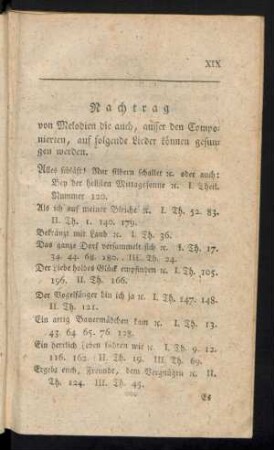 XIX
Nachtrag
von Melodien die auch, ausser den Compo-
nierten, auf folgende Lieder können gesun-
gen werden.
Alles schläft! Nur silbern schallet ꝛc. oder auch:
Bey der heißen Mittagssonne ꝛc. I Theil.
Nummer 120.
Als ich auf meiner Bleiche ꝛc. I. Th. 52. 83.
II. Th. 1. 140. 179.
Bekränzt mit Laub ꝛc. I. Th. 36.
Das ganze Dorf versammelt sich ꝛc. I. Th. 17.
34. 44. 68. 180. III. Th. 24.
Der Liebe holdes Glück empfinden ꝛc. I. Th. 105.
156. II. Th. 166.
Der Vogelfänger bin ich ja ꝛc. I. Th. 147. 148.
II. Th. 121.
Ein artig Bauermädchen kam ꝛc. I. Th. 13.
43. 64. 65. 76. 128.
Ein herrlich Leben führen wir ꝛc. I Th. 9. 12.
116. 162. II. Th. 19. III. Th. 69.
Ergebt euch, Freunde, dem Vergnügen ꝛc. II.
Th. 124. III. Th. 45.
Es